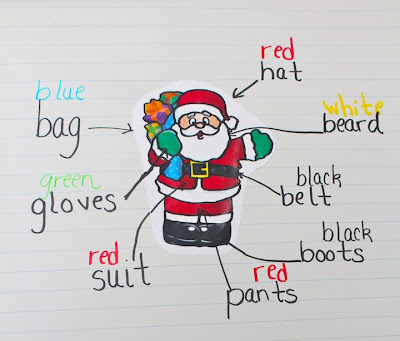 red
hat
blue
bag
white
beard
green
gloves
black
belt
red
suit
black
boots
red
pants